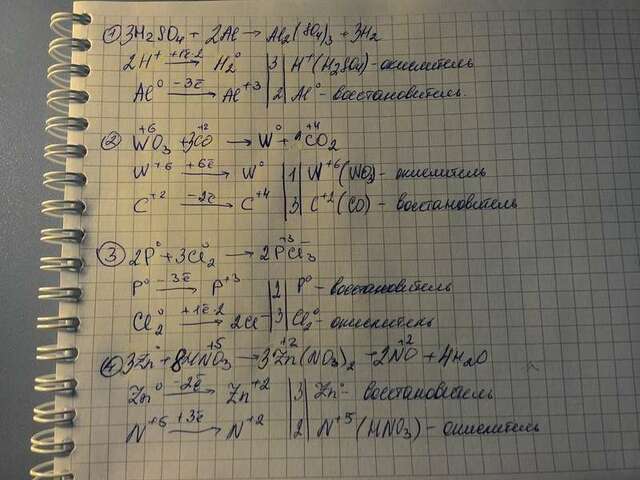 ① 3H₂SO₄ + 2Al → Al₂(SO₄)₃ + 3H₂
2H⁺ +1ē·2 → H₂⁰ | 3 | H⁺(H₂SO₄) - окислитель
Al⁰ -3ē → Al⁺³ | 2 | Al⁰ - восстановитель.
② W⁺⁶O₃ + 3C⁺²O → W⁰ + C⁺⁴O₂
W⁺⁶ +6ē → W⁰ | 1 | W⁺⁶(WO₃) - окислитель
C⁺² -2ē → C⁺⁴ | 3 | C⁺²(CO) - восстановитель
③ 2P⁰ + 3Cl₂⁰ → 2P⁺³Cl₃⁻
P⁰ -3ē → P⁺³ | 2 | P⁰ - восстановитель
Cl₂⁰ +1ē·2 → 2Cl⁻ | 3 | Cl₂⁰ - окислитель
④ 3Zn⁰ + 8HN⁺⁵O₃ → 3Zn⁺²(NO₃)₂ + 2N⁺²O + 4H₂O
Zn⁰ -2ē → Zn⁺² | 3 | Zn⁰ - восстановитель
N⁺⁶ +3ē → N⁺² | 2 | N⁺⁵(HNO₃) - окислитель